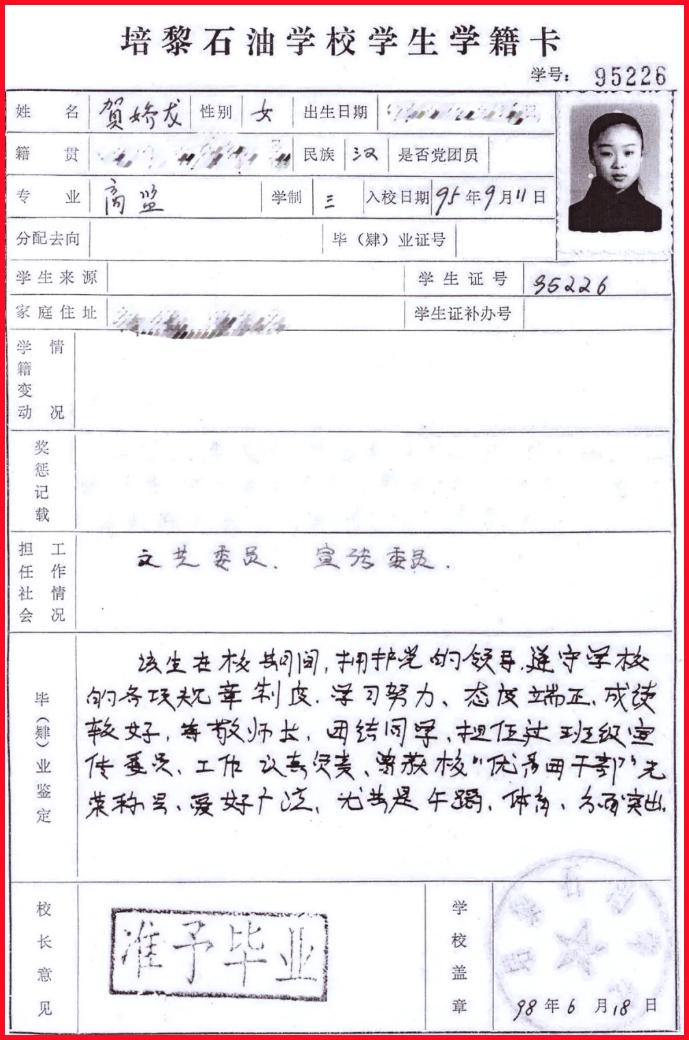 培黎石油学校学生学籍卡
学号: 95226
姓名 賀娇龙 性别 女 出生日期
籍贯 民族 汉 是否党团员
专业 商监 学制 三 入校日期 95年9月11日
分配去向 毕（肄）业证号
学生来源 学生证号 95226
家庭住址 学生证补办号
学籍变动情况
奖惩记载
担任社会工作情况 文艺委员、宣传委员.
毕（肄）业鉴定
该生在校期间,拥护党的领导.遵守学校
的各项规章制度.学习努力、态度端正,成绩
较好,尊敬师长,团结同学,担任过班级宣
传委员、工作认真负责,曾获校"优秀团干部"光
荣称号、爱好广泛,尤其是午蹈、体育,方面突出.
校长意见 准予毕业 学校盖章
98年6月18日